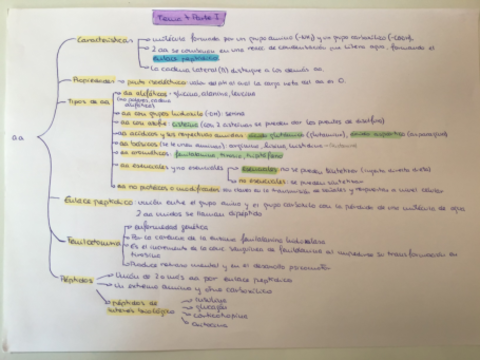 Tema 7 Parte I
Características
molécula formada por un grupo amino (-NH₂) y un grupo carboxílico (-COOH).
2 aa se combinan en una reac. de condensación que libera agua formando el
enlace peptídico
La cadena lateral (R) distingue a los demás aa.
Propiedades
punto isoeléctrico: valor del ph al cual la carga neta del aa es 0.
Tipos de aa
aa alifáticos - glicina, alanina, leucina
aa con grupos hidroxilo (OH): serina
aa con azufre: cisteína (con 2 cisteínas se pueden dar los puentes de disulfuro)
aa acídicos y sus respectivas amidas: ácido glutámico (glutamina), ácido aspártico (asparagina)
aa básicos: arginina, lisina, histidina
aa aromáticos: fenilalanina, tirosina, triptófano
aa esenciales y no esenciales
esenciales: no se pueden sintetizar
no esenciales: se pueden sintetizar
aa no proteicos o modificados: en la transmisión de señales y respuestas a nivel celular
aa
Enlace peptídico: unión entre el grupo amino y el grupo carboxilo con la pérdida de una molécula de agua
2 aa unidos se llaman dipéptido
Fenilcetonuria
enfermedad genética
Por la carencia de la enzima fenilalanina hidroxilasa
Es el incremento de la conc. sanguínea de fenilalanina al no poderse transformar en
tirosina
Produce retraso mental y en el desarrollo psicomotor
Péptidos
Unión de 2 o más aa por enlace peptídico
Un extremo amino y otro carboxílico
péptidos de
interés biológico
insulina
glucagón
corticotropina
oxitocina